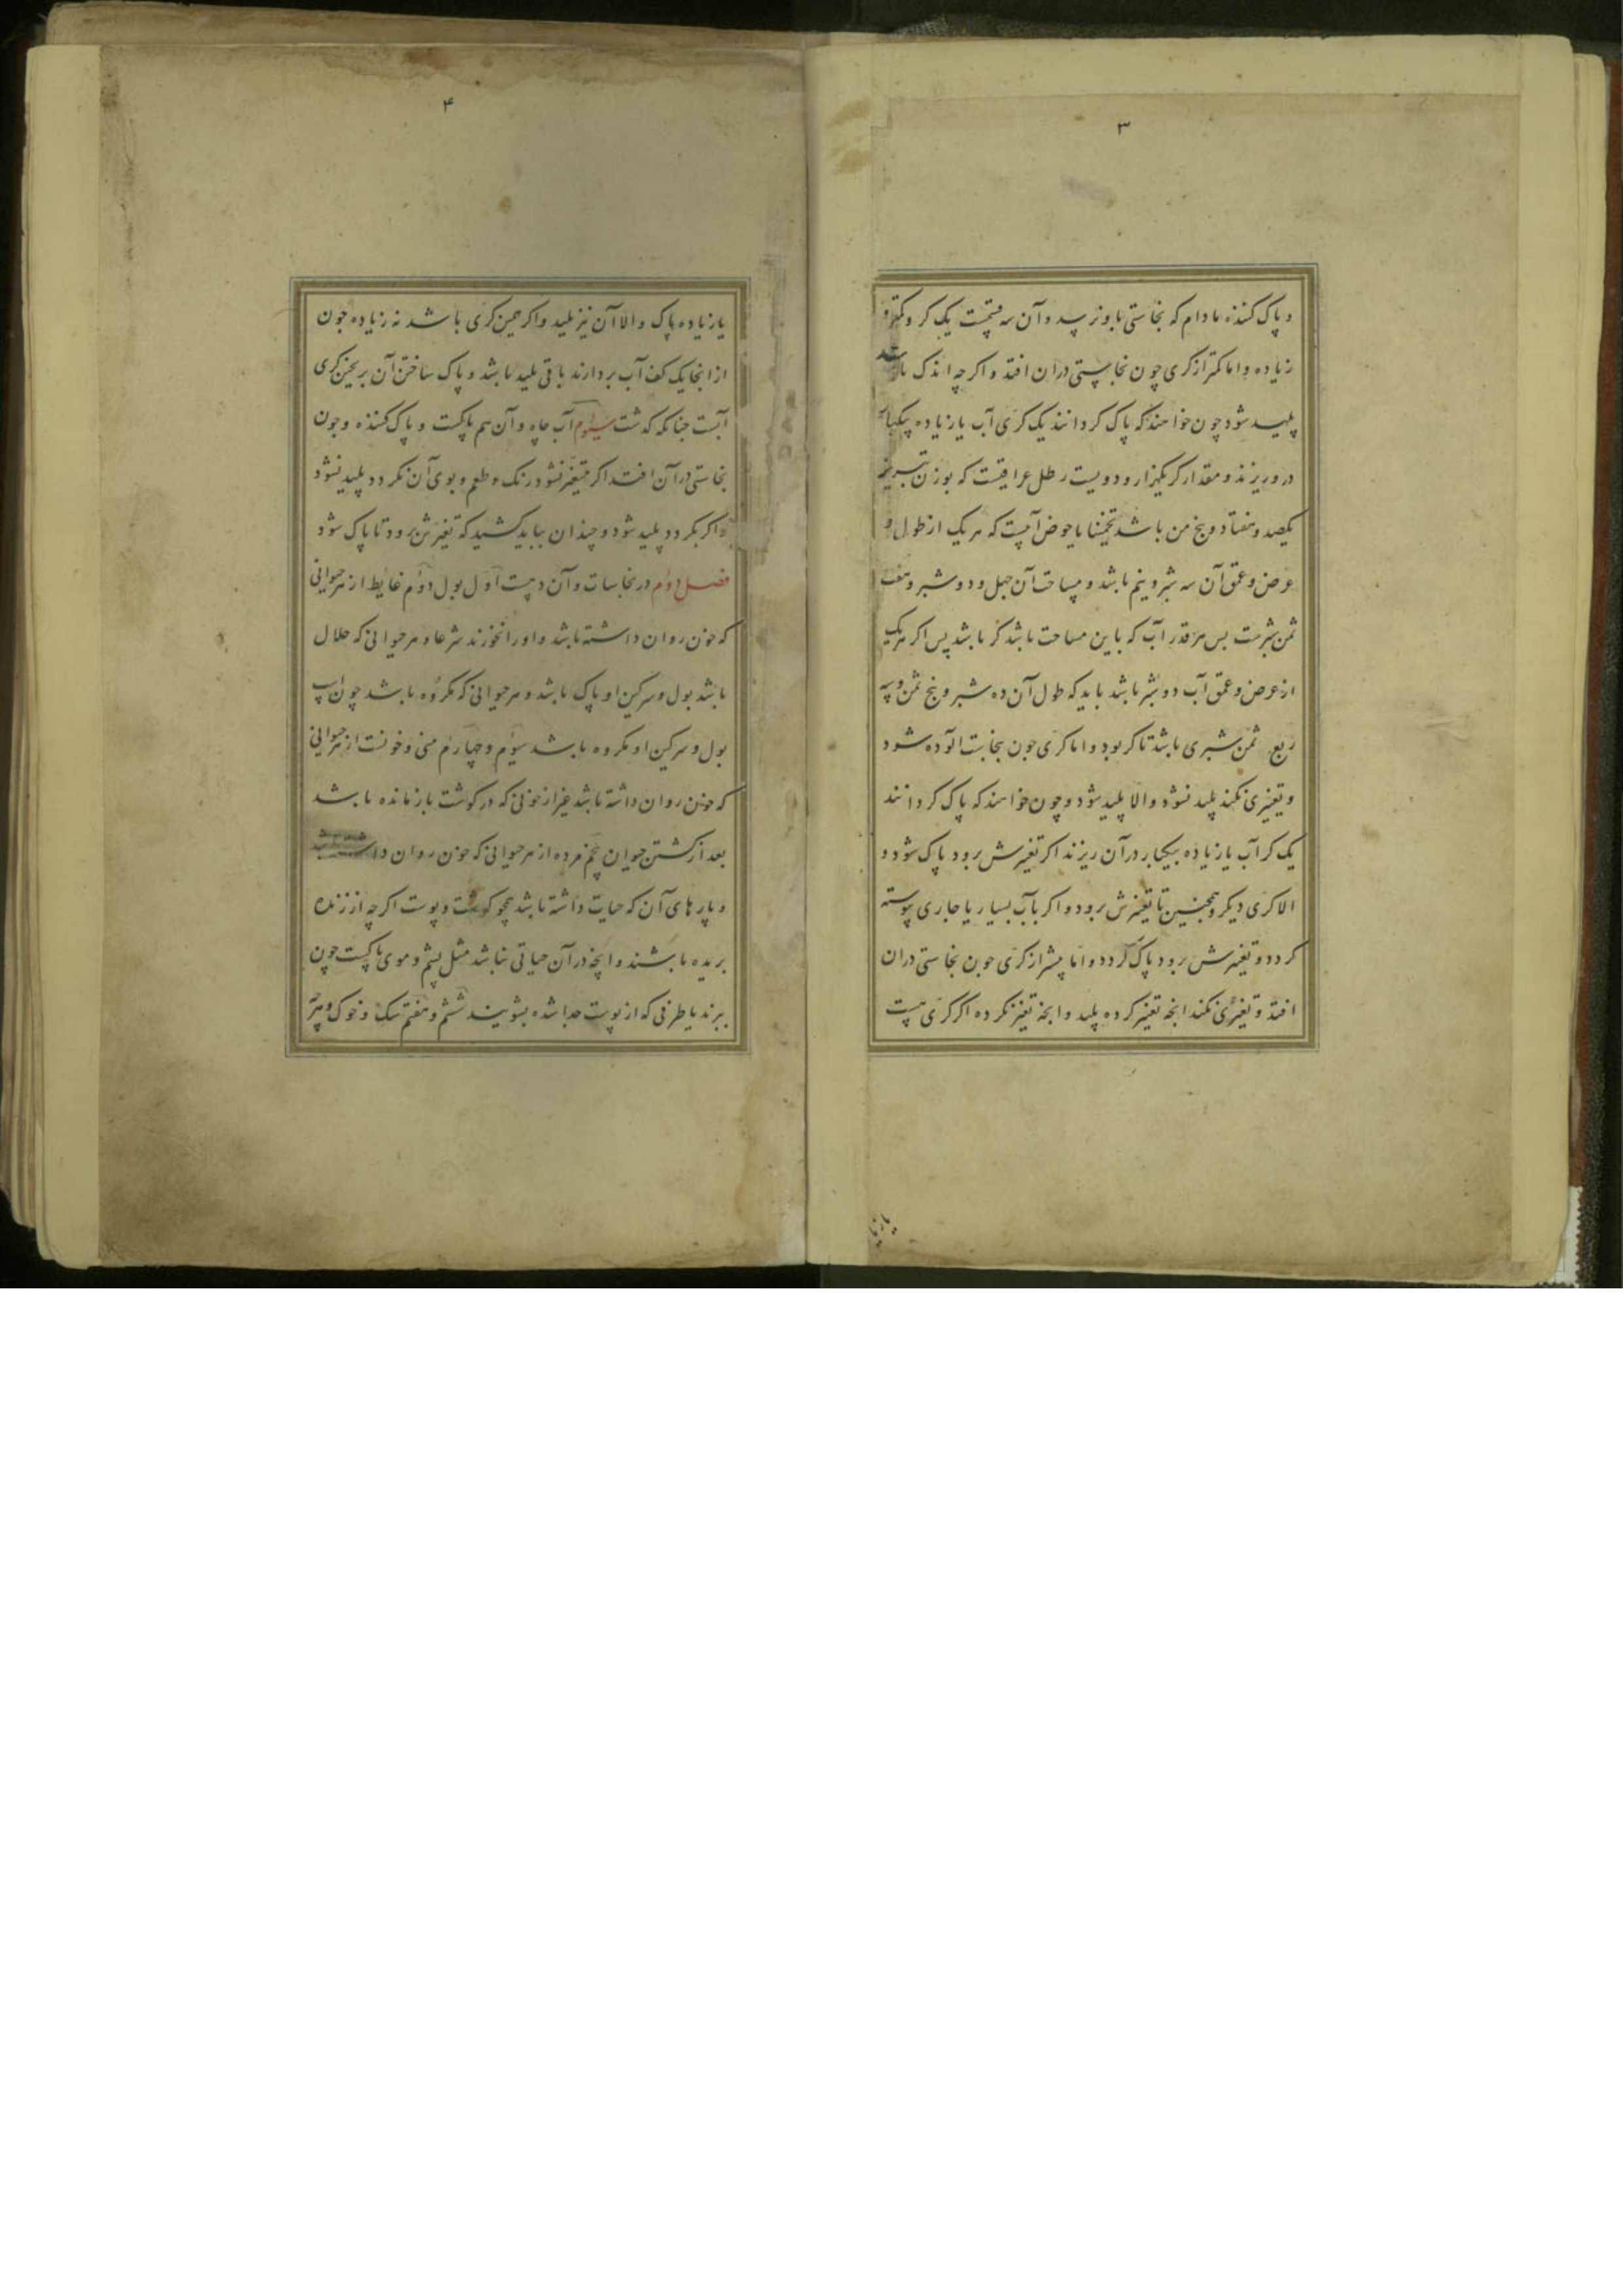 ۳
و پاک کننده مادام که نجاستی باو نرسد و آن سه قسمست یک کر و کمتر و
زیاده و اما کمتر از کری چون نجاستی دران افتد و اگرچه اندک باشد
پلید شود چون خواهند که پاک گردانند یک کری آب یا زیاده بیکبار
درو ریزند و مقدار کر یکهزار و دویست رطل عراقیست که بوزن تبریز
یکصد و هفتاد و پنج من باشد تخمینا یا حوض آبیست که هر یک از طول و
عرض و عمق آن سه شبر و نیم باشد و مساحت آن چهل و دو شبر و هفت
ثمن شبرست پس هر قدر آب که باین مساحت باشد کر باشد پس اگر هر یک
از عرض و عمق آب دو شبر باشد باید که طول آن ده شبر و پنج ثمن و سه
ربع ثمن شبری باشد تا کر بود و اما کری چون بنجاست آلوده شود
و تغیری نکند پلید نشود والا پلید شود و چون خواهند که پاک گردانند
یک کر آب یا زیاده بیکبار در آن ریزند اگر تغیرش برود پاک شود و
الا کری دیگر و همچنین تا تغیرش برود و اگر بآب بسیار یا جاری پیوسته
گردد و تغیرش برود پاک گردد و اما بیشتر از کری چون نجاستی دران
افتد و تغیری نکند آنچه تغیر کرده پلید و آنچه تغیر نکرده اگر کری هست
یا زیا
۴
یا زیاده پاک والا آن نیز پلید و اگر همین کری باشد نه زیاده چون
از آنجا یک کف آب بردارند باقی پلید باشد و پاک ساختن آن بریختن کری
آبست چنانکه گذشت سیوم آب چاه و آن هم پاکست و پاک کننده و چون
نجاستی در آن افتد اگر متغیر نشود رنگ و طعم و بوی آن نگردد پلید نشود
و اگر بگردد پلید شود و چندان بباید کشید که تغیرش برود تا پاک شود
فصل دوم در نجاسات و آن دهست اول بول دوم غایط از هر حیوانی
که خون روان داشته باشد و او را نخورند شرعا و هر حیوانی که حلال
باشد بول و سرگین او پاک باشد و هر حیوانی که مکروه باشد چون اسپ
بول و سرگین او مکروه باشد سوم و چهارم منی و خونست از هر حیوانی
که خون روان داشته باشد غیر از خونی که در گوشت بازمانده باشد
بعد از کشتن حیوان پنجم مرده از هر حیوانی که خون روان داشته باشد
و پارهای آن که حیات داشته باشد همچو گوشت و پوست اگرچه از زنده
بریده باشند و آنچه در آن حیاتی نباشد مثل پشم و موی پاکست چون
ببرند یا طرفی که از پوست جدا شده بشویند ششم و هفتم سک و خوک